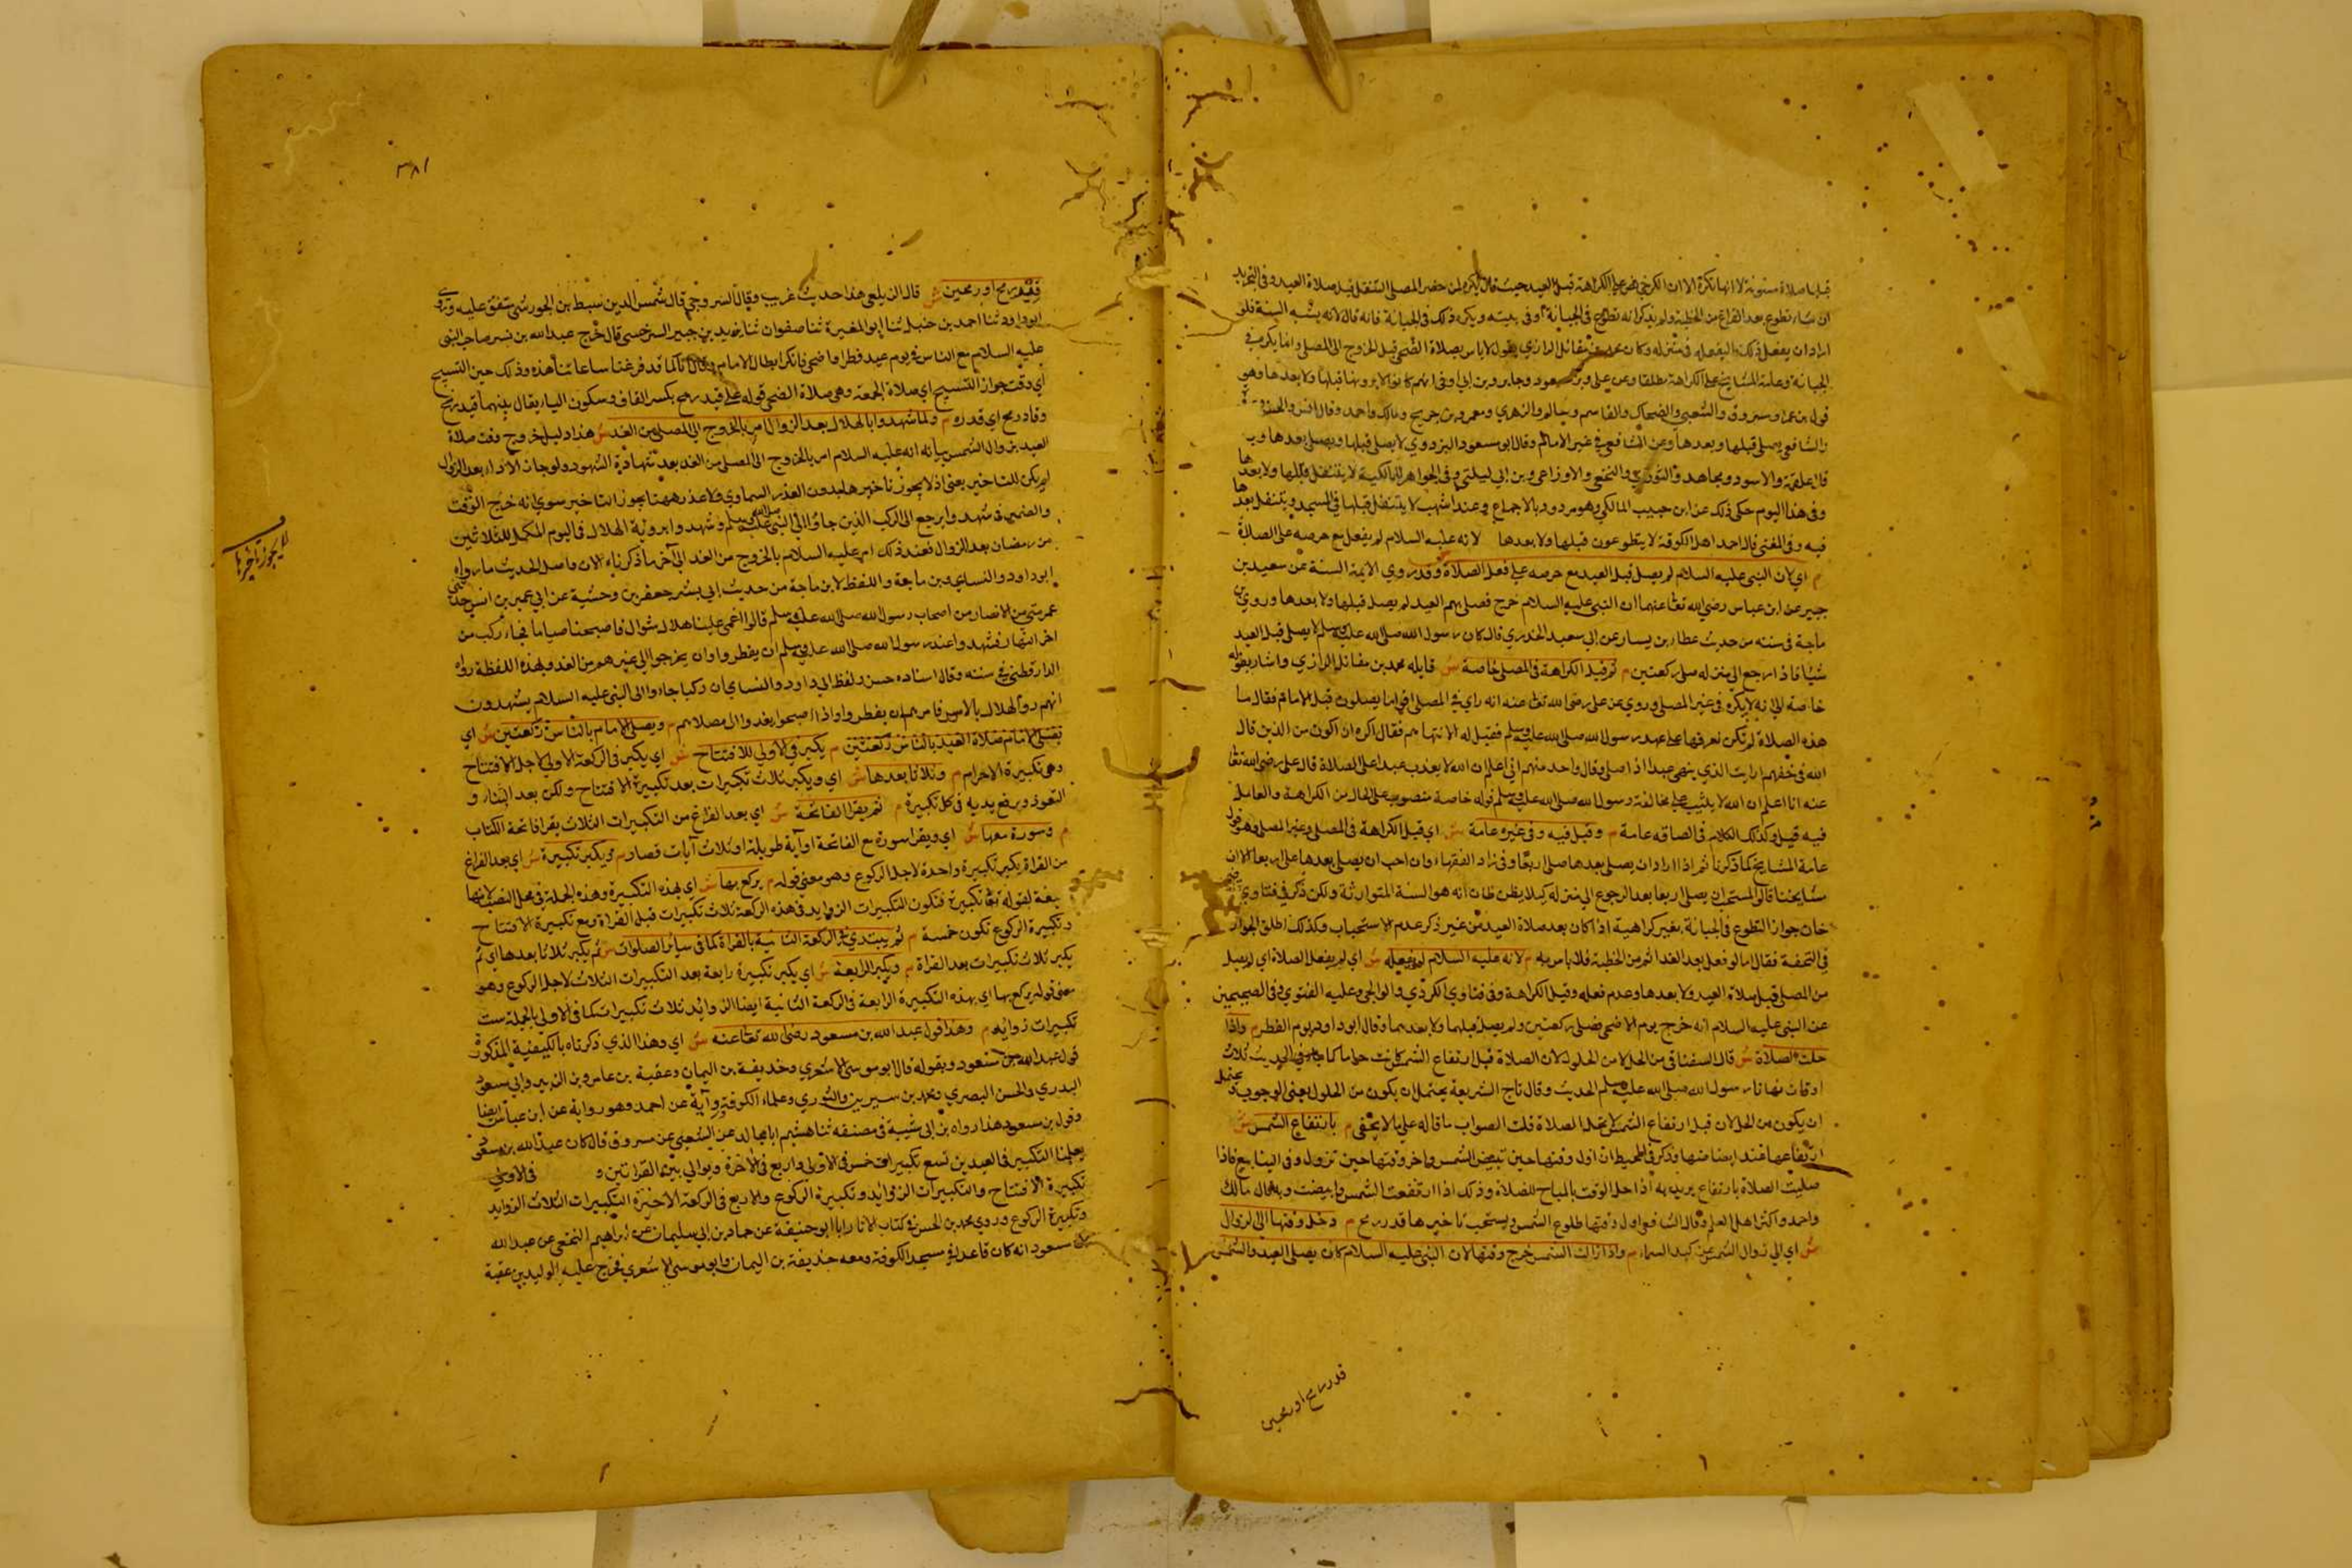 قبلها صلاة مسنونة لا انها تكره الا ان الكرخي نص على الكراهة قبل العيد حيث قال يكره لمن حضر المصلى التنفل قبل صلاة العيد وفي التجريد
ان شاء تطوع بعد الفراغ من الخطبة ولم يذكر انه تطوع في الجبانة او في بيته ويكره ذلك في الجبانة فانه قال لانه يشبه السنة فلو
اراد ان يفعل ذلك فليفعله في منزله وكان محمد بن مقاتل الرازي يقول لا باس بصلاة الضحى قبل الخروج الى المصلى وانما يكره في
الجبانة وعامة المشايخ على الكراهة مطلقا وعن علي وبن مسعود وجابر وبن ابي اوفى انهم كانوا لا يرونها قبلها ولا بعدها وهو
قول بن عمر ومسروق والشعبي والضحاك والقاسم وسالم والزهري ومعمر وبن جريج ومالك واحمد وقال انس والحسن
والشافعي يصلى قبلها وبعدها وعن الشافعي في غير الامام وقال ابو مسعود البزدوي لا يصلي قبلها ويصلي بعدها وبه
قال علقمة والاسود ومجاهد والثوري والنخعي والاوزاعي وبن ابي ليلى وفي الجواهر للمالكية لا يتنفل قبلها ولا بعدها
وفي هذا اليوم حكي ذلك عن ابن حبيب المالكي وهو مردود بالاجماع وعند اشهب لا يتنفل قبلها في المسجد ويتنفل بعدها
فيه وفي المغني قال احمد اهل الكوفة لا يتطوعون قبلها ولا بعدها لانه عليه السلام لم يفعل مع حرصه على الصلاة
م اي لان النبي عليه السلام لم يصل قبل العيد مع حرصه على فعل الصلاة وقد روي الايمة الستة عن سعيد بن
جبير عن ابن عباس رضي الله تعالى عنهما ان النبي عليه السلام خرج فصلى بهم العيد لم يصل قبلها ولا بعدها وروي بن
ماجة في سننه من حديث عطاء بن يسار عن ابي سعيد الخدري قال كان رسول الله صلى الله عليه وسلم لا يصلي قبل العيد
شيئا فاذا رجع الى منزله صلى ركعتين م ثم قيل الكراهة في المصلى خاصة ش قايله محمد بن مقاتل الرازي واشار بقوله
خاصة الى انه لا يكره في غير المصلى وروي عن علي رضي الله تعالى عنه انه راى في المصلى اقواما يصلون قبل الامام فقال ما
هذه الصلاة لم نكن نعرفها على عهد رسول الله صلى الله عليه وسلم فقيل له الا تنهاهم فقال اكره ان اكون من الذين قال
الله في حقهم ارايت الذي ينهى عبدا اذا صلى وقال واحد منهم اني اعلم ان الله لا يعذب عبدا على الصلاة قال علي رضي الله تعالى
عنه انا اعلم ان الله لا يثيب على مخالفة رسول الله صلى الله عليه وسلم قوله خاصة منصوب على الحال من الكراهة والعامل
فيه قيل وكذلك الكلام في انتصاب عامة م وقيل فيه وفي غيره عامة ش اي قيل الكراهة في المصلى وغير المصلى وهو قول
عامة المشايخ كما ذكرنا ثم اذا اراد ان يصلي بعدها صلى اربعا وفي زاد الفقهاء وان احب ان يصلي بعدها صلى اربعا الا ان
مشايخنا قالوا المستحب ان يصلي اربعا بعد الرجوع الى منزله كيلا يظن ظان انه هو السنة المتوارثة ولكن ذكر في فتاوي قاضي
خان جواز التطوع في الجبانة بغير كراهية اذا كان بعد صلاة العيد من غير ذكر عدم الاستحباب وكذلك اطلق الجواز
في التحفة فقال اما لو فعل بعد الفراغ من الخطبة فلا باس به م لانه عليه السلام لم يفعله ش اي لم يفعل الصلاة اي لم يصل
من المصلى قبل صلاة العيد ولا بعدها وعدم فعله وقيل الكراهة وفي فتاوي الكردي والولوالجي وعليه الفتوي وفي الصحيحين
عن النبي عليه السلام انه خرج يوم الاضحى فصلى ركعتين ولم يصل قبلهما ولا بعدهما وقال ابو داود يوم الفطر م واذا
حلت الصلاة ش قال السغناقي من الحل لا من الحلول لان الصلاة قبل ارتفاع الشمس كانت حراما كما جاء في الحديث ثلاث
اوقات نهانا رسول الله صلى الله عليه وسلم الحديث وقال تاج الشريعة يحتمل ان يكون من الحلول بمعنى الوجوب ويحتمل
ان يكون من الحل لان قبل ارتفاع الشمس لا تحل الصلاة قلت الصواب ما قاله على ما لا يخفى م بارتفاع الشمس ش
ارتفاعها عندا بيضاضها وذكر في المحيط ان اول وقتها حين تبيض الشمس واخر وقتها حين تزول وفي الينابيع فاذا
صليت الصلاة بارتفاع يريد به اذا حل الوقت بالمباح للصلاة وذلك اذا ارتفعت الشمس وابيضت وبه قال مالك
واحمد واكثر اهل العلم وقال الشافعي اول وقتها طلوع الشمس ويستحب تاخيرها قدر رمح م دخل وقتها الى الزوال
ش اي الى زوال الشمس عن كبد السماء م واذا زالت الشمس خرج وقتها لان النبي عليه السلام كان يصلي العيد والشمس
قدر رمح او رمحين
٣٨١
قيد رمح او رمحين ش قال الزيلعي هذا حديث غريب وقال السروجي قال شمس الدين سبط بن الجوزي متفق عليه وروى
ابو داود ثنا احمد بن حنبل ثنا ابو المغيرة ثنا صفوان ثنا يزيد بن خمير الرحبي قال خرج عبد الله بن بسر صاحب النبي
عليه السلام مع الناس في يوم عيد فطر او اضحى فانكر ابطا الامام وقال انا كنا قد فرغنا ساعاتنا هذه وذلك حين التسبيح
اي وقت جواز التسبيح اي صلاة الجمعة وهي صلاة الضحى قوله على قيد رمح بكسر القاف وسكون الياء يقال بينهما قيد رمح
وقاد رمح اي قدره م ولما شهدوا بالهلال بعد الزوال امر بالخروج الى المصلى من الغد ش هذا دليل خروج وقت صلاة
العيد بزوال الشمس بيانه انه عليه السلام امر بالخروج الى المصلى من الغد بعد شهادة الشهود ولو جاز الاداء بعد الزوال
لم يكن للتاخير معنى اذ لا يجوز تاخيرها بدون العذر السماوي ولا عذر ههنا يجوز التاخير سوي انه خرج الوقت
والضمير في شهدوا يرجع الى الركب الذين جاؤا الى النبي صلى الله عليه وسلم وشهدوا برؤية الهلال في اليوم المكمل للثلاثين
من رمضان بعد الزوال فعند ذلك امر عليه السلام بالخروج من الغد الى آخر ما ذكرناه الان واصل الحديث ما رواه
ابو داود والنسايي وبن ماجة واللفظ لابن ماجة من حديث ابي بشر جعفر بن وحشية عن ابي عمير بن انس حدثني
عمومتي من الانصار من اصحاب رسول الله صلى الله عليه وسلم قالوا اغمي علينا هلال شوال فاصبحنا صياما فجاء ركب من
اخر النهار فشهدوا عند رسول الله صلى الله عليه وسلم ان يفطروا وان يخرجوا الى عيدهم من الغد وبهذه اللفظة رواه
الدارقطني في سننه وقال اسناده حسن ولفظ ابي داود والنسايي ان ركبا جاءوا الى النبي عليه السلام يشهدون
انهم راوا الهلال بالامس فامرهم ان يفطروا واذا اصبحوا يغدوا الى مصلاهم م ويصلي الامام بالناس ركعتين ش اي
يصلي الامام صلاة العيد بالناس ركعتين م يكبر في الاولى للافتتاح ش اي يكبر في الركعة الاولى لاجل الافتتاح
وهي تكبيرة الاحرام م وثلاثا بعدها ش اي ويكبر ثلاث تكبيرات بعد تكبيرة الافتتاح ولكن بعد الثناء و
التعوذ ويرفع يديه في كل تكبيرة م ثم يقرا الفاتحة ش اي بعد الفراغ من التكبيرات الثلاث يقرا فاتحة الكتاب
م وسورة معها ش اي ويقرا سورة مع الفاتحة او آية طويلة او ثلاث آيات قصار م ويكبر تكبيرة ش اي بعد الفراغ
من القراة يكبر تكبيرة واحدة لاجل الركوع وهو معنى قوله م يركع بها ش اي بهذه التكبيرة وهذه الجملة في محل النصب لانها
صفة لقوله تعالى تكبيرة فتكون التكبيرات الزوايد في هذه الركعة ثلاث تكبيرات قبل القراة ومع تكبيرة الافتتاح
وتكبيرة الركوع تكون خمسة م ثم يبتدي في الركعة الثانية بالقراة كما في سائر الصلوات ش ثم يكبر ثلاثا بعدها اي ثم
يكبر ثلاث تكبيرات بعد القراة م ويكبر الرابعة ش اي يكبر تكبيرة رابعة بعد التكبيرات الثلاث لاجل الركوع وهو
معنى قوله يركع بها اي بهذه التكبيرة الرابعة في الركعة الثانية ايضا الزوائد ثلاث تكبيرات كما في الاولى بالجملة ست
تكبيرات زوايد م وهذا قول عبد الله بن مسعود رضي الله تعالى عنه ش اي وهذا الذي ذكرناه بالكيفية المذكورة
قول عبد الله بن مسعود وبقوله قال ابو موسى الاشعري وحذيفة بن اليمان وعقبة بن عامر وبن الزبير وابي مسعود
البدري والحسن البصري ومحمد بن سيرين والثوري وعلماء الكوفة ورواية عن احمد وهو رواية عن ابن عباس ايضا
وقول بن مسعود هذا رواه بن ابي شيبة في مصنفه ثنا هشيم انا مجالد عن الشعبي عن مسروق قال كان عبد الله بن مسعود
يعلمنا التكبير في العيدين تسع تكبيرات خمس في الاولى واربع في الاخرة ويوالي بين القراتين و في الاولى
تكبيرة الافتتاح والتكبيرات الزوائد وتكبيرة الركوع والاربع في الركعة الاخيرة التكبيرات الثلاث الزوايد
وتكبيرة الركوع وروي محمد بن الحسن في كتاب الاثار انا ابو حنيفة عن حماد بن ابي سليمان عن ابراهيم النخعي عن عبد الله
بن مسعود انه كان قاعدا في مسجد الكوفة ومعه حذيفة بن اليمان وابو موسى الاشعري فخرج عليهم الوليد بن عقبة
لا يجوز تاخيرها